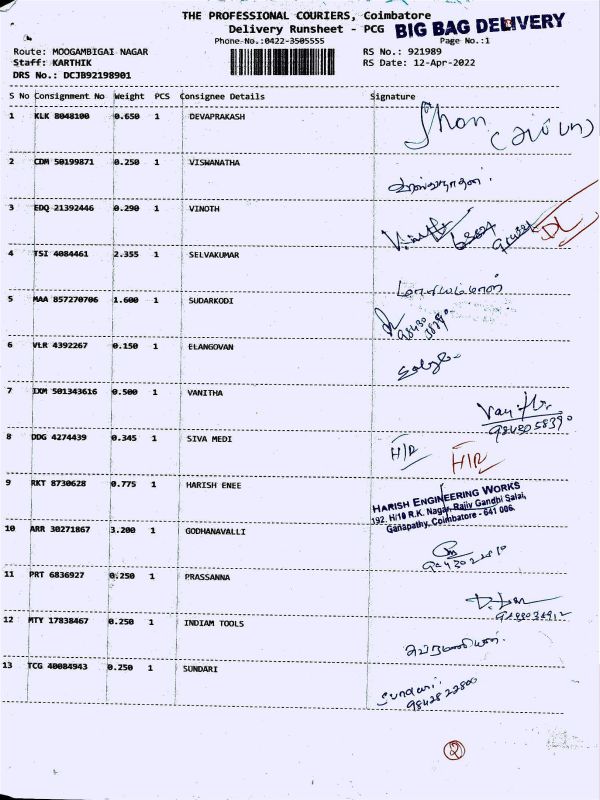 THE PROFESSIONAL COURIERS, Coimbatore
Delivery Runsheet - PCG BIG BAG DELIVERY
Phone-No.:0422-3505555 Page No.:1
Route: MOOGAMBIGAI NAGAR RS No.: 921989
Staff: KARTHIK RS Date: 12-Apr-2022
DRS No.: DCJB92198901
S No Consignment No Weight PCS Consignee Details Signature
1 KLK 8048100 0.650 1 DEVAPRAKASH
2 CDM 50199871 0.250 1 VISWANATHA
3 EDQ 21392446 0.290 1 VINOTH
DL
4 TSI 4084461 2.355 1 SELVAKUMAR
5 MAA 857270706 1.600 1 SUDARKODI
6 VLR 4392267 0.150 1 ELANGOVAN
7 IXM 501343616 0.500 1 VANITHA
8 DDG 4274439 0.345 1 SIVA MEDI
H/R H/R
9 RKT 8730628 0.775 1 HARISH ENEE
HARISH ENGINEERING WORKS
192, H/10 R.K. Nagar, Rajiv Gandhi Salai,
Ganapathy, Coimbatore - 641 006.
10 ARR 30271867 3.200 1 GODHANAVALLI
11 PRT 6836927 0.250 1 PRASSANNA
12 MTY 17838467 0.250 1 INDIAM TOOLS
13 TCG 40084943 0.250 1 SUNDARI
Sundari
9842822800
2